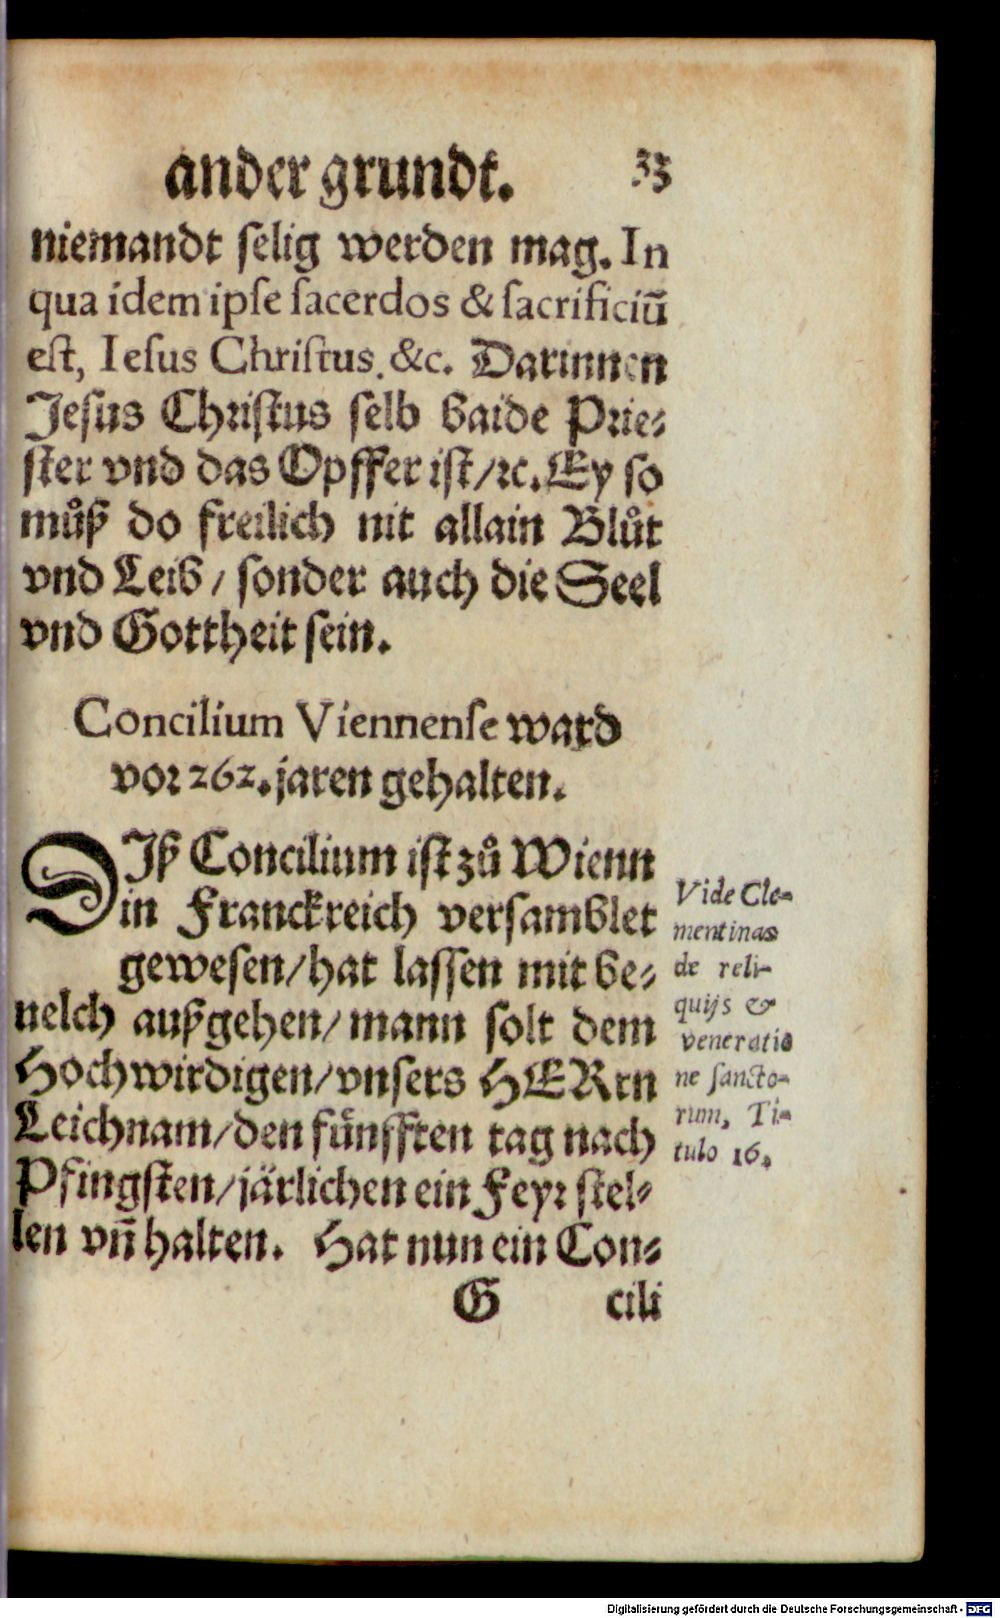 ander grundt. 33
niemandt ſelig werden mag. In
qua idem ipſe ſacerdos & ſacrificiū
eſt, Ieſus Chriſtus. &c. Darinnen
Jeſus Chriſtus ſelb baide Prie⸗
ſter vnd das Opffer iſt/ ꝛc. Ey ſo
muͦß do freilich nit allain Bluͦt
vnd Leib / ſonder auch die Seel
vnd Gottheit ſein.
Concilium Viennenſe ward
vor 262. jaren gehalten.
DIß Concilium iſt zuͦ Wienn
in Franckreich verſamblet
geweſen/ hat laſſen mit be⸗
uelch außgehen/ mann ſolt dem
Hochwirdigen/ vnſers HERrn
Leichnam/ den fuͤnfften tag nach
Pfingſten/ jaͤrlichen ein Feyr ſtel⸗
len vñ halten. Hat nun ein Con⸗
G cili
Vide Cle-
mentinas
de reli-
quijs &
veneratio
ne ſancto-
rum, Ti-
tulo 16.
Digitalisierung gefördert durch die Deutsche Forschungsgemeinschaft - DFG